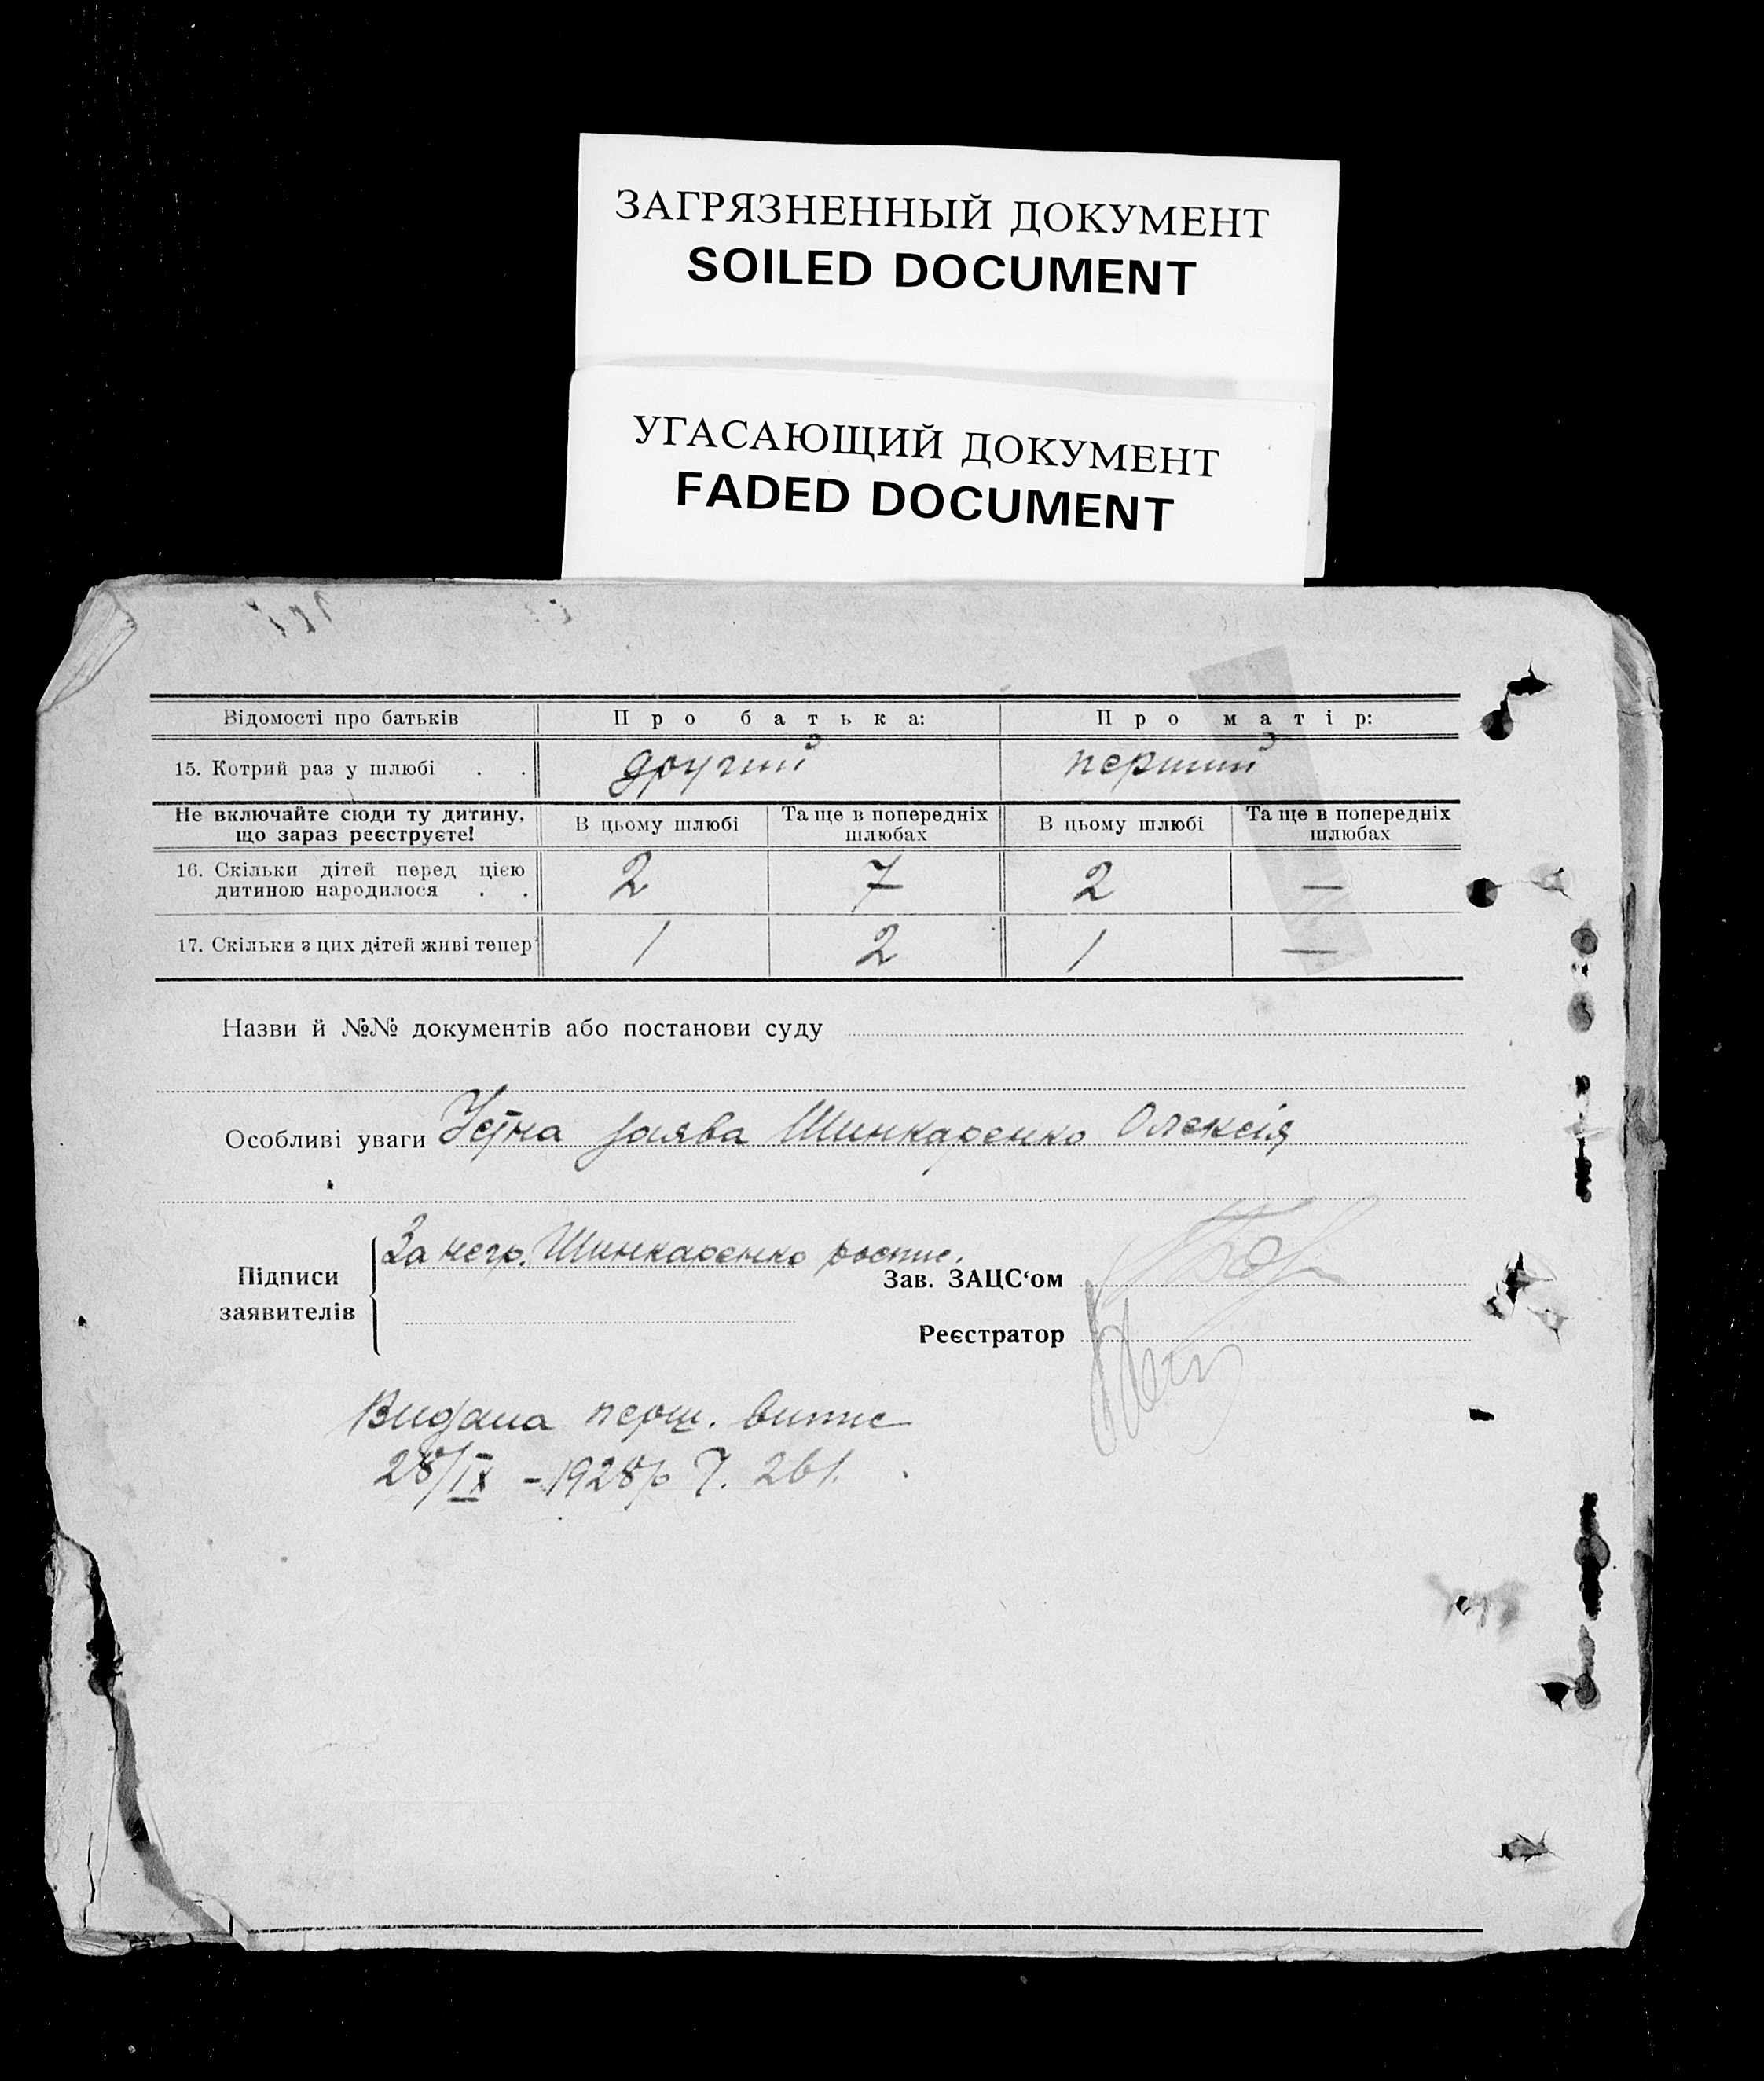 ЗАГРЯЗНЕННЫЙ ДОКУМЕНТ
SOILED DOCUMENT
УГАСАЮЩИЙ ДОКУМЕНТ
FADED DOCUMENT
Відомості про батьків Про батька: Про матір:
15. Котрий раз у шлюбі . . другий перший
Не включайте сюди ту дитину, що зараз реєструєте! В цьому шлюбі Та ще в попередніх шлюбах В цьому шлюбі Та ще в попередніх шлюбах
16. Скільки дітей перед цією дитиною народилося . . 2 7 2 —
17. Скільки з цих дітей живі тепер 1 2 1 —
Назви й №№ документів або постанови суду
Особливі уваги Устна заява Шинкаренко Олексія
Підписи заявителів За негр. Шинкаренко роспис.
Зав. ЗАЦС‘ом
Реєстратор
Видана перш. випис
28/IX - 1928р